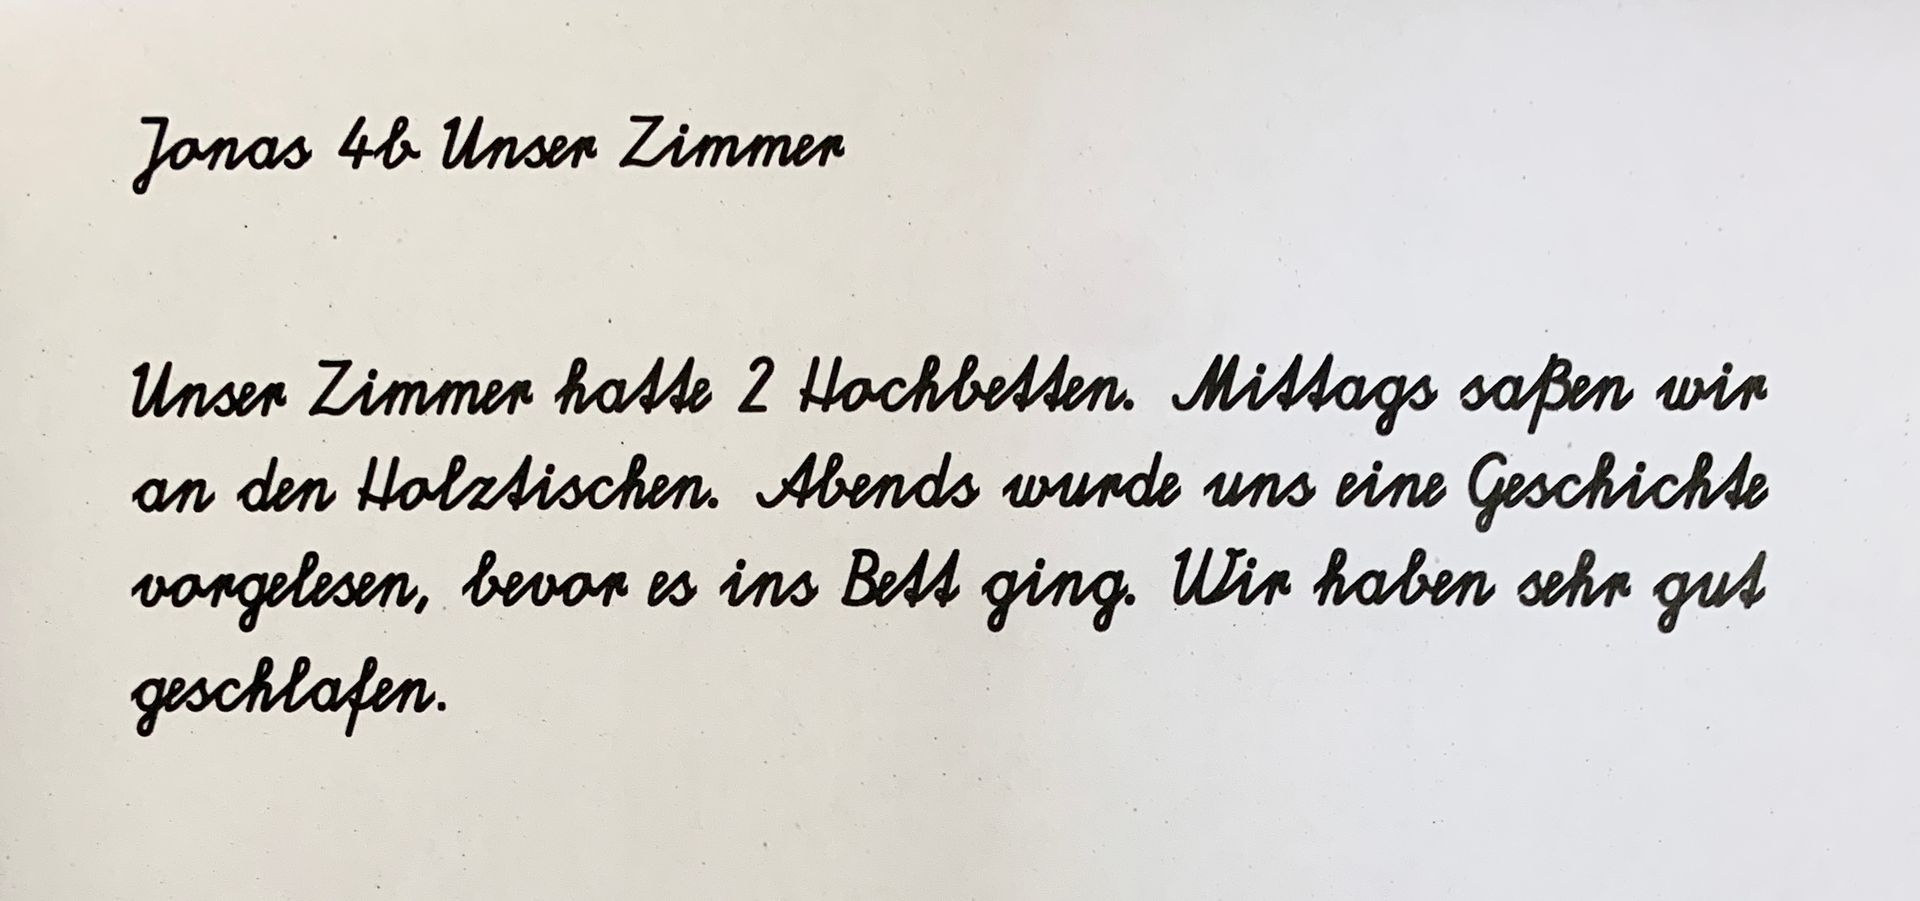 Jonas 4b Unser Zimmer
Unser Zimmer hatte 2 Hochbetten. Mittags saßen wir
an den Holztischen. Abends wurde uns eine Geschichte
vorgelesen, bevor es ins Bett ging. Wir haben sehr gut
geschlafen.